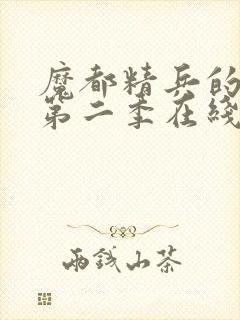 魔都精兵的
第二季在线
雨钱山茶